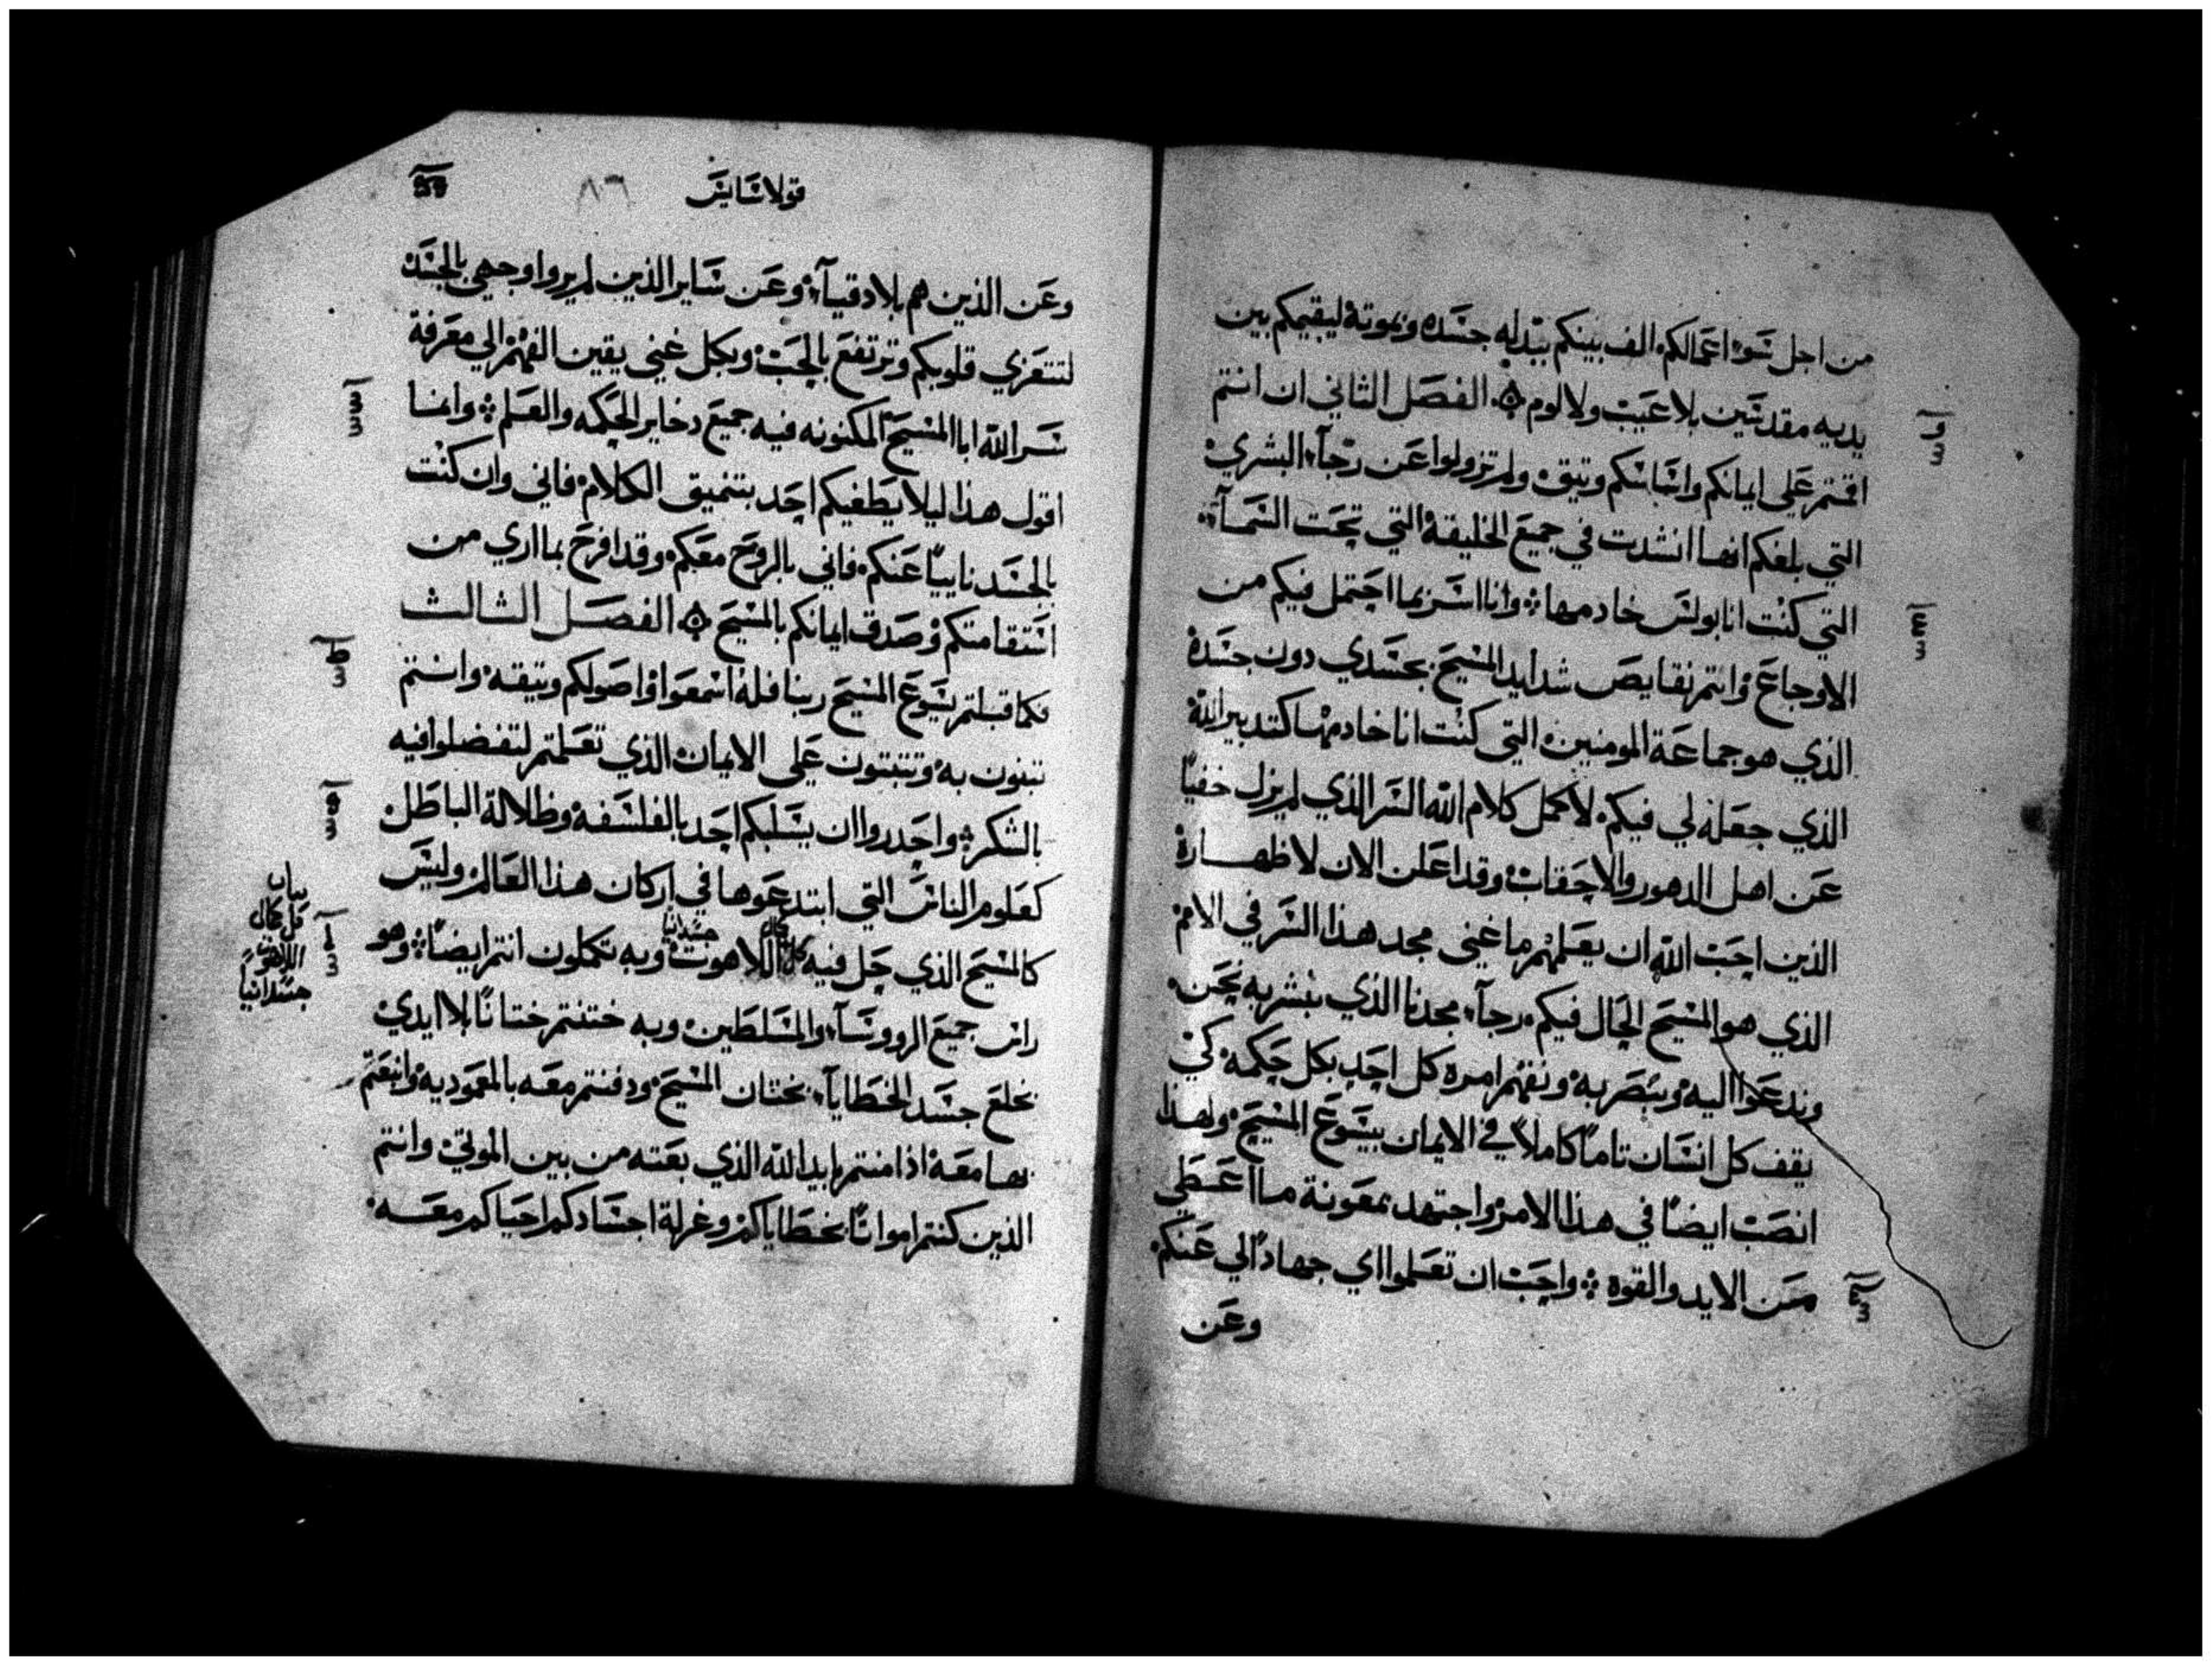 من اجل سوء اعمالكم. الف بينكم ببدله جسده وبموته ليقيمكم بين
يديه مقدسين بلا عيب ولا لوم ۞ الفصل الثاني ان انتم
اقمتم علي ايمانكم واساسكم وتيق ولم تزولوا عن رجآء البشري
التي بلغكم انها انشدت في جميع الخليقة التي تحت السمآء
التي كنت انا بولس خادمها وانا اسر بما احتمل فيكم من
الاوجاع واتم نقايص شدايد المسيح بجسدي دون جسده
الذي هو جماعة المومنين التي كنت انا خادمها كتدبير الله
الذي جعله لي فيكم لاكمل كلام الله السر الذي لم يزل خفيا
عن اهل الدهور والاحقاب وقد اعلن الان لاظهاره
الذين احب الله ان يعلمهم ما غني مجد هذا السر في الامم
الذي هو المسيح الحال فيكم رجآء مجدنا الذي نبشر به نحن
وندعوا اليه ونبصر به ونفهم امره كل احد بكل حكمه كي
يقف كل انسان تاما كاملا في الايمان بيسوع المسيح ولهذا
انصب ايضا في هذا الامر واجتهد بمعونة ما اعطي
من الايد والقوه واحب ان تعلموا اي جهاد لي عنكم
وعن
قولاسايس
٨٦
وعن الذين هم بلادقيآء وعن ساير الذين لم يروا وجهي بالجسد
لتتعزي قلوبكم وترتفع بالحب وبكل غني يقين الفهم الي معرفة
سر الله ابا المسيح المكنونه فيه جميع دخاير الحكمه والعلم وانما
اقول هذا ليلا يطغيكم احد بتنميق الكلام فاني وان كنت
بالجسد ناييا عنكم فاني بالروح معكم وقد افرح بما اري من
استقامتكم وصدق ايمانكم بالمسيح ۞ الفصل الثالث
فكما قبلتم يسوع المسيح ربنا فله اسمعوا واصولكم وتيقه وانتم
تبنون به وتثبتون علي الايمان الذي تعلمتم لتفضلوا فيه
بالشكر واحدروا ان يسلبكم احد بالفلسفه وظلالة الباطل
كعلوم الناس التي ابتدعوها في اركان هذا العالم وليس
كالمسيح الذي حل فيه كل كمال اللاهوت جسدانيا وبه تكملون انتم ايضا وهو
راس جميع الروسآء والمسلطين وبه ختنتم ختانا بلا ايدي
بخلع جسد الخطايآء بختان المسيح ودفنتم معه بالمعموديه وانبعتم
بها معه اذ امنتم بايد الله الذي بعته من بين الموتي وانتم
الذين كنتم امواتا بخطاياكم وغرلة اجسادكم احياكم معه
بيان
كل كمال
اللاهوت
جسدانيا